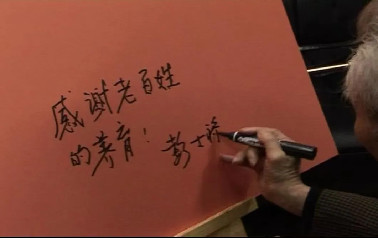 感谢老百姓
的养育！彭士禄